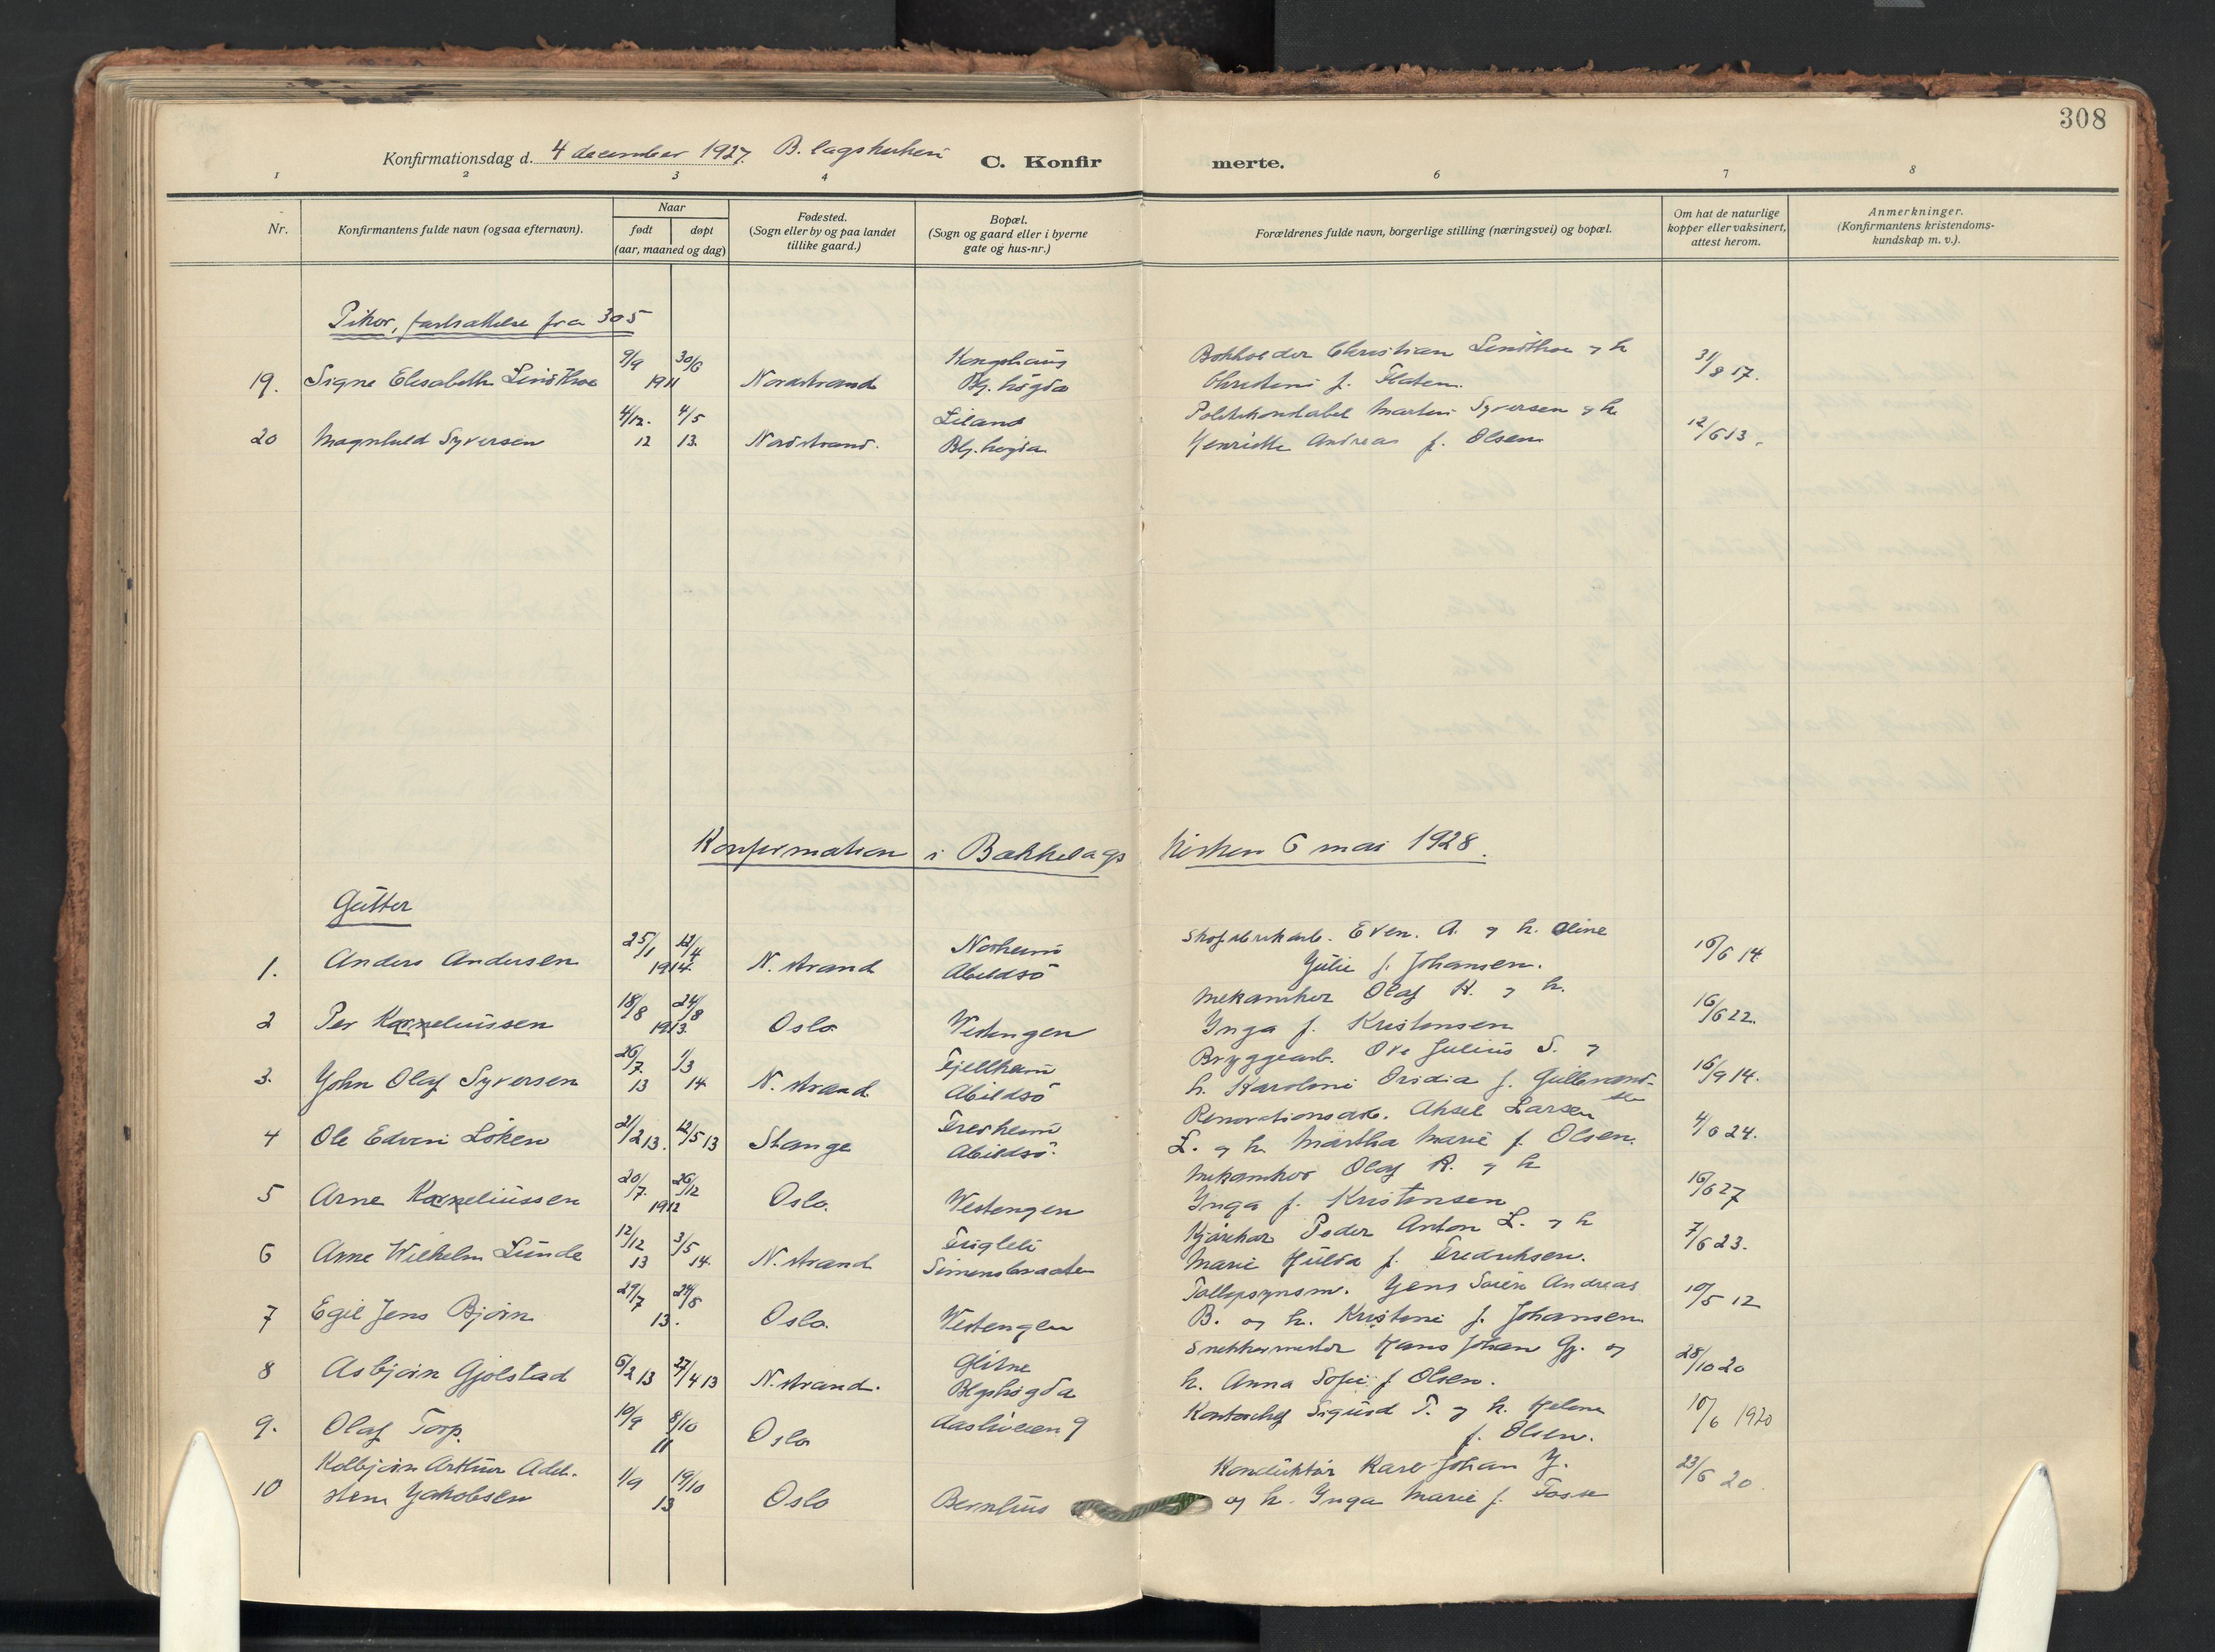 308
Konfirmationsdag d. 4 december 1927. B.lagskirken C. Konfirmerte.
1 2 3 4 6 7 8
Nr.
Konfirmantens fulde navn (ogsaa efternavn).
Naar
født døpt
(aar, maaned og dag)
Fødested.
(Sogn eller by og paa landet
tillike gaard.)
Bopæl.
(Sogn og gaard eller i byerne
gate og hus-nr.)
Forældrenes fulde navn, borgerlige stilling (næringsvei) og bopæl.
Om hat de naturlige
kopper eller vaksinert,
attest herom.
Anmerkninger.
(Konfirmantens kristendoms-
kundskap m. v.).
Piker, fortsættelse fra 305
9/9 30/6 Kongshaug Bokholder Christian Lindthoe og h
19. Signe Elisabeth Lindthoe 1911 Nordstrand Blj. högda Christine f. Flaten. 31/8 17.
4/12. 4/5 Liland Politikonstabel Martin Syversen og h
20 Magnhild Syversen 12 13. Nordstrand. Blj. högda Henriette Andrea f. Olsen 12/6 13.
Konfirmation i Bækkelagskirken 6 mai 1928.
Gutter
25/1 12/4 Norheim Skofabrikarb. Even. A. og h. Oline
1. Anders Andersen 1914. N. strand Abildsö Julie f. Johansen. 16/6 14
18/8 24/8 Mekaniker Olaf K. og h.
2 Per Korneliussen 1913 Oslo Vestengen Inga f. Kristensen 16/6 22.
26/7. 1/3 Fjellheim Bryggearb. Ove Julius S. og
3. John Olaf Syversen 13 14. N. strand. Abildsö h. Karoline Ovidia f. Gulbrand- 16/9 14.
sen
21/2 13. 12/5 13 Fresheim Renovationsarb. Aksel Larsen
4 Ole Edvin Löken Stange Abildsö. L. og h. Martha Marie f. Olsen. 4/6 24.
20/7. 26/12 Mekaniker Olaf K. og h
5 Arne Korneliussen 1912 Oslo. Vestengen Inga f. Kristensen 16/6 27
12/12 3/5 Fugleli Kjörekar Peder Anton L. og h
6 Arne Wilhelm Lunde 13 14. N. strand Simensbraaten Marie Hulda f. Fredriksen. 7/6 23.
29/7 24/8 Tolloppsynsm. Jens Sören Andreas
7 Egil Jens Björn 13. Oslo. Vestengen B. og h. Kristine f. Johansen 10/5 12
6/2 13 27/4 13 Glitne Snekkermester Hans Johan Gj. og
8 Asbjörn Gjölstad N. strand. Blgshögda h. Anna Sofie f Olsen. 28/10 20
10/9 8/10 Aasliveien 9 Kontorchef Sigurd T. og h. Helene
9. Olaf Torp. 11 Oslo f. Olsen. 10/6 1920
Kolbjörn Arthur Adel- 1/9 19/10 Konduktör Karl Johan J. 23/6 20.
10 sten Jakobsen 13 Oslo Bernhus og h. Inga Marie f. Fosse